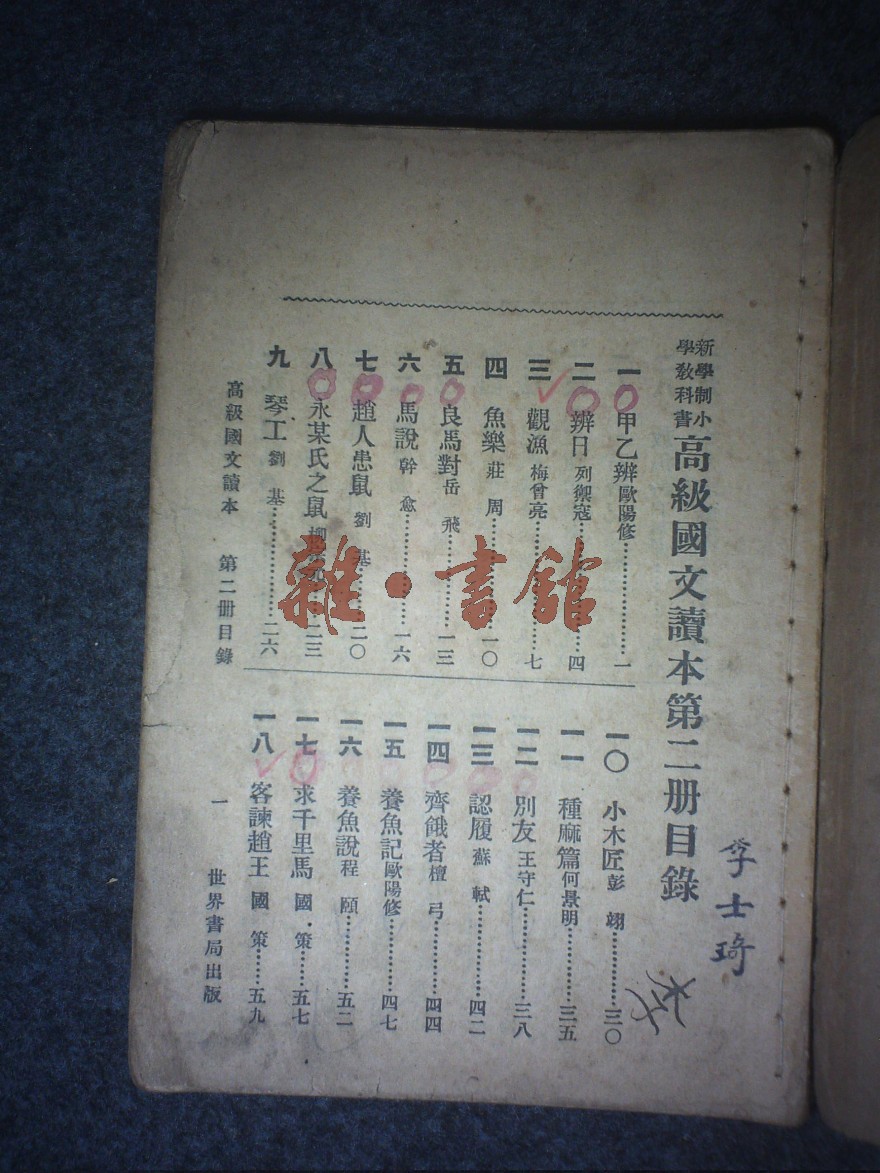 新學制小
學教科書
高級國文讀本第二册目錄
一 甲乙辨 歐陽修……一
二 辨日 列禦寇……四
三 觀漁 梅曾亮……七
四 魚樂 莊周……一〇
五 良馬對 岳飛……一三
六 馬說 幹愈……一六
七 趙人患鼠 劉基……二〇
八 永某氏之鼠 柳……二三
九 琴工 劉基……二六
一〇 小木匠 彭翊……三〇
一一 種麻篇 何景明……三五
一二 別友 王守仁……三八
一三 認履 蘇軾……四二
一四 齊餓者 檀弓……四四
一五 養魚記 歐陽修……四七
一六 養魚說 程頤……五二
一七 求千里馬 國策……五七
一八 客諫趙王 國策……五九
高級國文讀本 第二册目錄 一 世界書局出版
李士琦
李
雜·書館